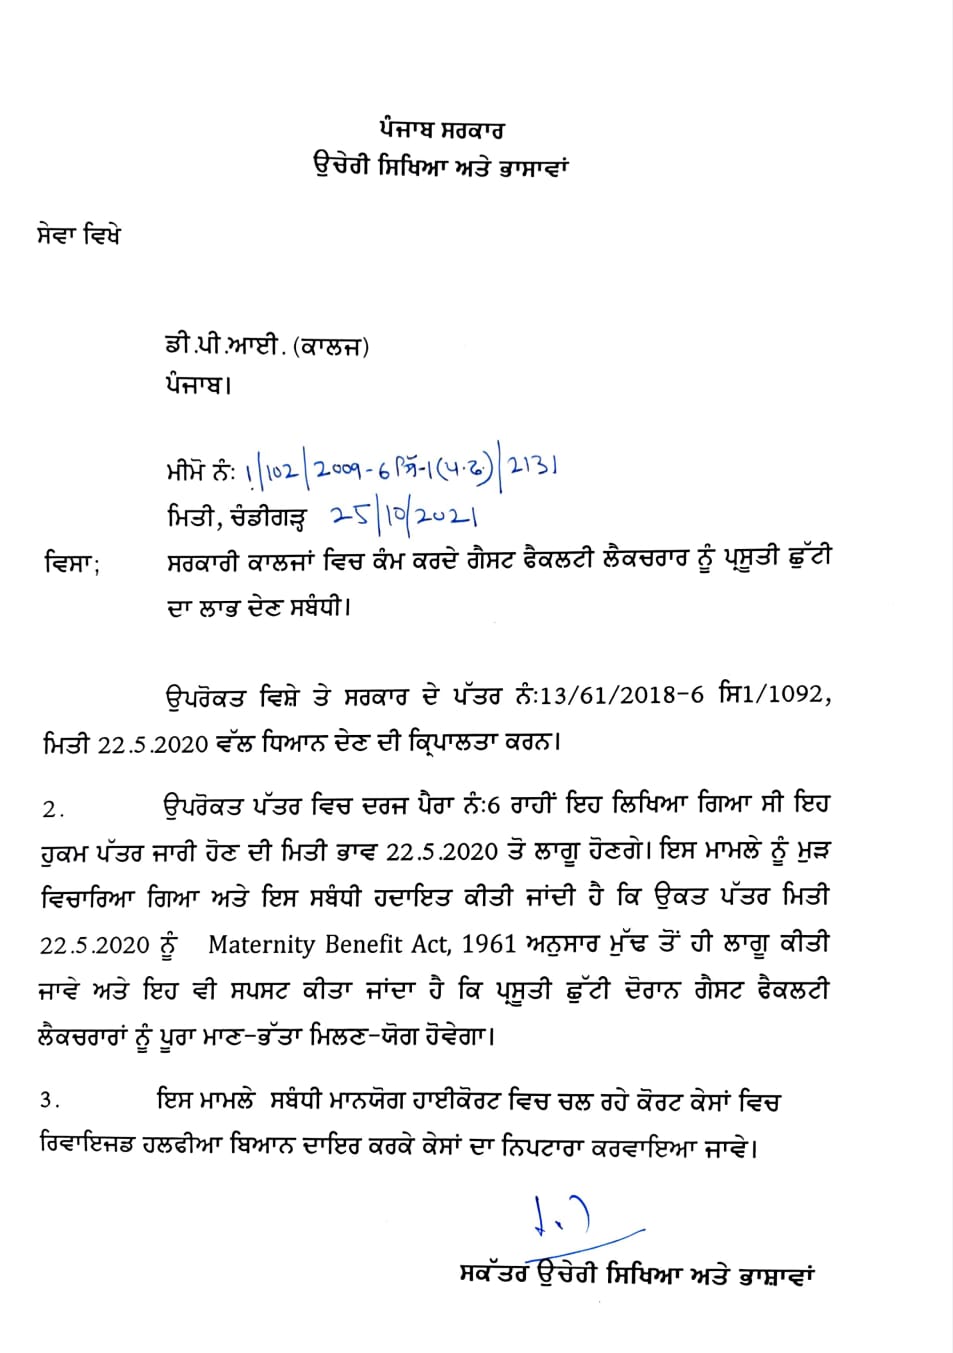 ਪੰਜਾਬ ਸਰਕਾਰ
ਉਚੇਰੀ ਸਿਖਿਆ ਅਤੇ ਭਾਸਾਵਾਂ
ਸੇਵਾ ਵਿਖੇ
ਡੀ.ਪੀ.ਆਈ. (ਕਾਲਜ)
ਪੰਜਾਬ।
ਮੀਮੋ ਨੰ: 1/102/2009-6 ਸਿ-1(ਪ.ਫ.)/2131
ਮਿਤੀ, ਚੰਡੀਗੜ੍ਹ 25/10/2021
ਵਿਸਾ; ਸਰਕਾਰੀ ਕਾਲਜਾਂ ਵਿਚ ਕੰਮ ਕਰਦੇ ਗੈਸਟ ਫੈਕਲਟੀ ਲੈਕਚਰਾਰ ਨੂੰ ਪ੍ਰਸੂਤੀ ਛੁੱਟੀ
ਦਾ ਲਾਭ ਦੇਣ ਸਬੰਧੀ।
ਉਪਰੋਕਤ ਵਿਸ਼ੇ ਤੇ ਸਰਕਾਰ ਦੇ ਪੱਤਰ ਨੰ:13/61/2018-6 ਸਿ1/1092,
ਮਿਤੀ 22.5.2020 ਵੱਲ ਧਿਆਨ ਦੇਣ ਦੀ ਕ੍ਰਿਪਾਲਤਾ ਕਰਨ।
2. ਉਪਰੋਕਤ ਪੱਤਰ ਵਿਚ ਦਰਜ ਪੈਰਾ ਨੰ:6 ਰਾਹੀਂ ਇਹ ਲਿਖਿਆ ਗਿਆ ਸੀ ਇਹ
ਹੁਕਮ ਪੱਤਰ ਜਾਰੀ ਹੋਣ ਦੀ ਮਿਤੀ ਭਾਵ 22.5.2020 ਤੋ ਲਾਗੂ ਹੋਣਗੇ। ਇਸ ਮਾਮਲੇ ਨੂੰ ਮੁੜ
ਵਿਚਾਰਿਆ ਗਿਆ ਅਤੇ ਇਸ ਸਬੰਧੀ ਹਦਾਇਤ ਕੀਤੀ ਜਾਂਦੀ ਹੈ ਕਿ ਉਕਤ ਪੱਤਰ ਮਿਤੀ
22.5.2020 ਨੂੰ Maternity Benefit Act, 1961 ਅਨੁਸਾਰ ਮੁੱਢ ਤੋਂ ਹੀ ਲਾਗੂ ਕੀਤੀ
ਜਾਵੇ ਅਤੇ ਇਹ ਵੀ ਸਪਸਟ ਕੀਤਾ ਜਾਂਦਾ ਹੈ ਕਿ ਪ੍ਰਸੂਤੀ ਛੁੱਟੀ ਦੋਰਾਨ ਗੈਸਟ ਫੈਕਲਟੀ
ਲੈਕਚਰਾਰਾਂ ਨੂੰ ਪੂਰਾ ਮਾਣ-ਭੱਤਾ ਮਿਲਣ-ਯੋਗ ਹੋਵੇਗਾ।
3. ਇਸ ਮਾਮਲੇ ਸਬੰਧੀ ਮਾਨਯੋਗ ਹਾਈਕੋਰਟ ਵਿਚ ਚਲ ਰਹੇ ਕੋਰਟ ਕੇਸਾਂ ਵਿਚ
ਰਿਵਾਇਜਡ ਹਲਫੀਆ ਬਿਆਨ ਦਾਇਰ ਕਰਕੇ ਕੇਸਾਂ ਦਾ ਨਿਪਟਾਰਾ ਕਰਵਾਇਆ ਜਾਵੇ।
ਸਕੱਤਰ ਉਚੇਰੀ ਸਿਖਿਆ ਅਤੇ ਭਾਸ਼ਾਵਾਂ